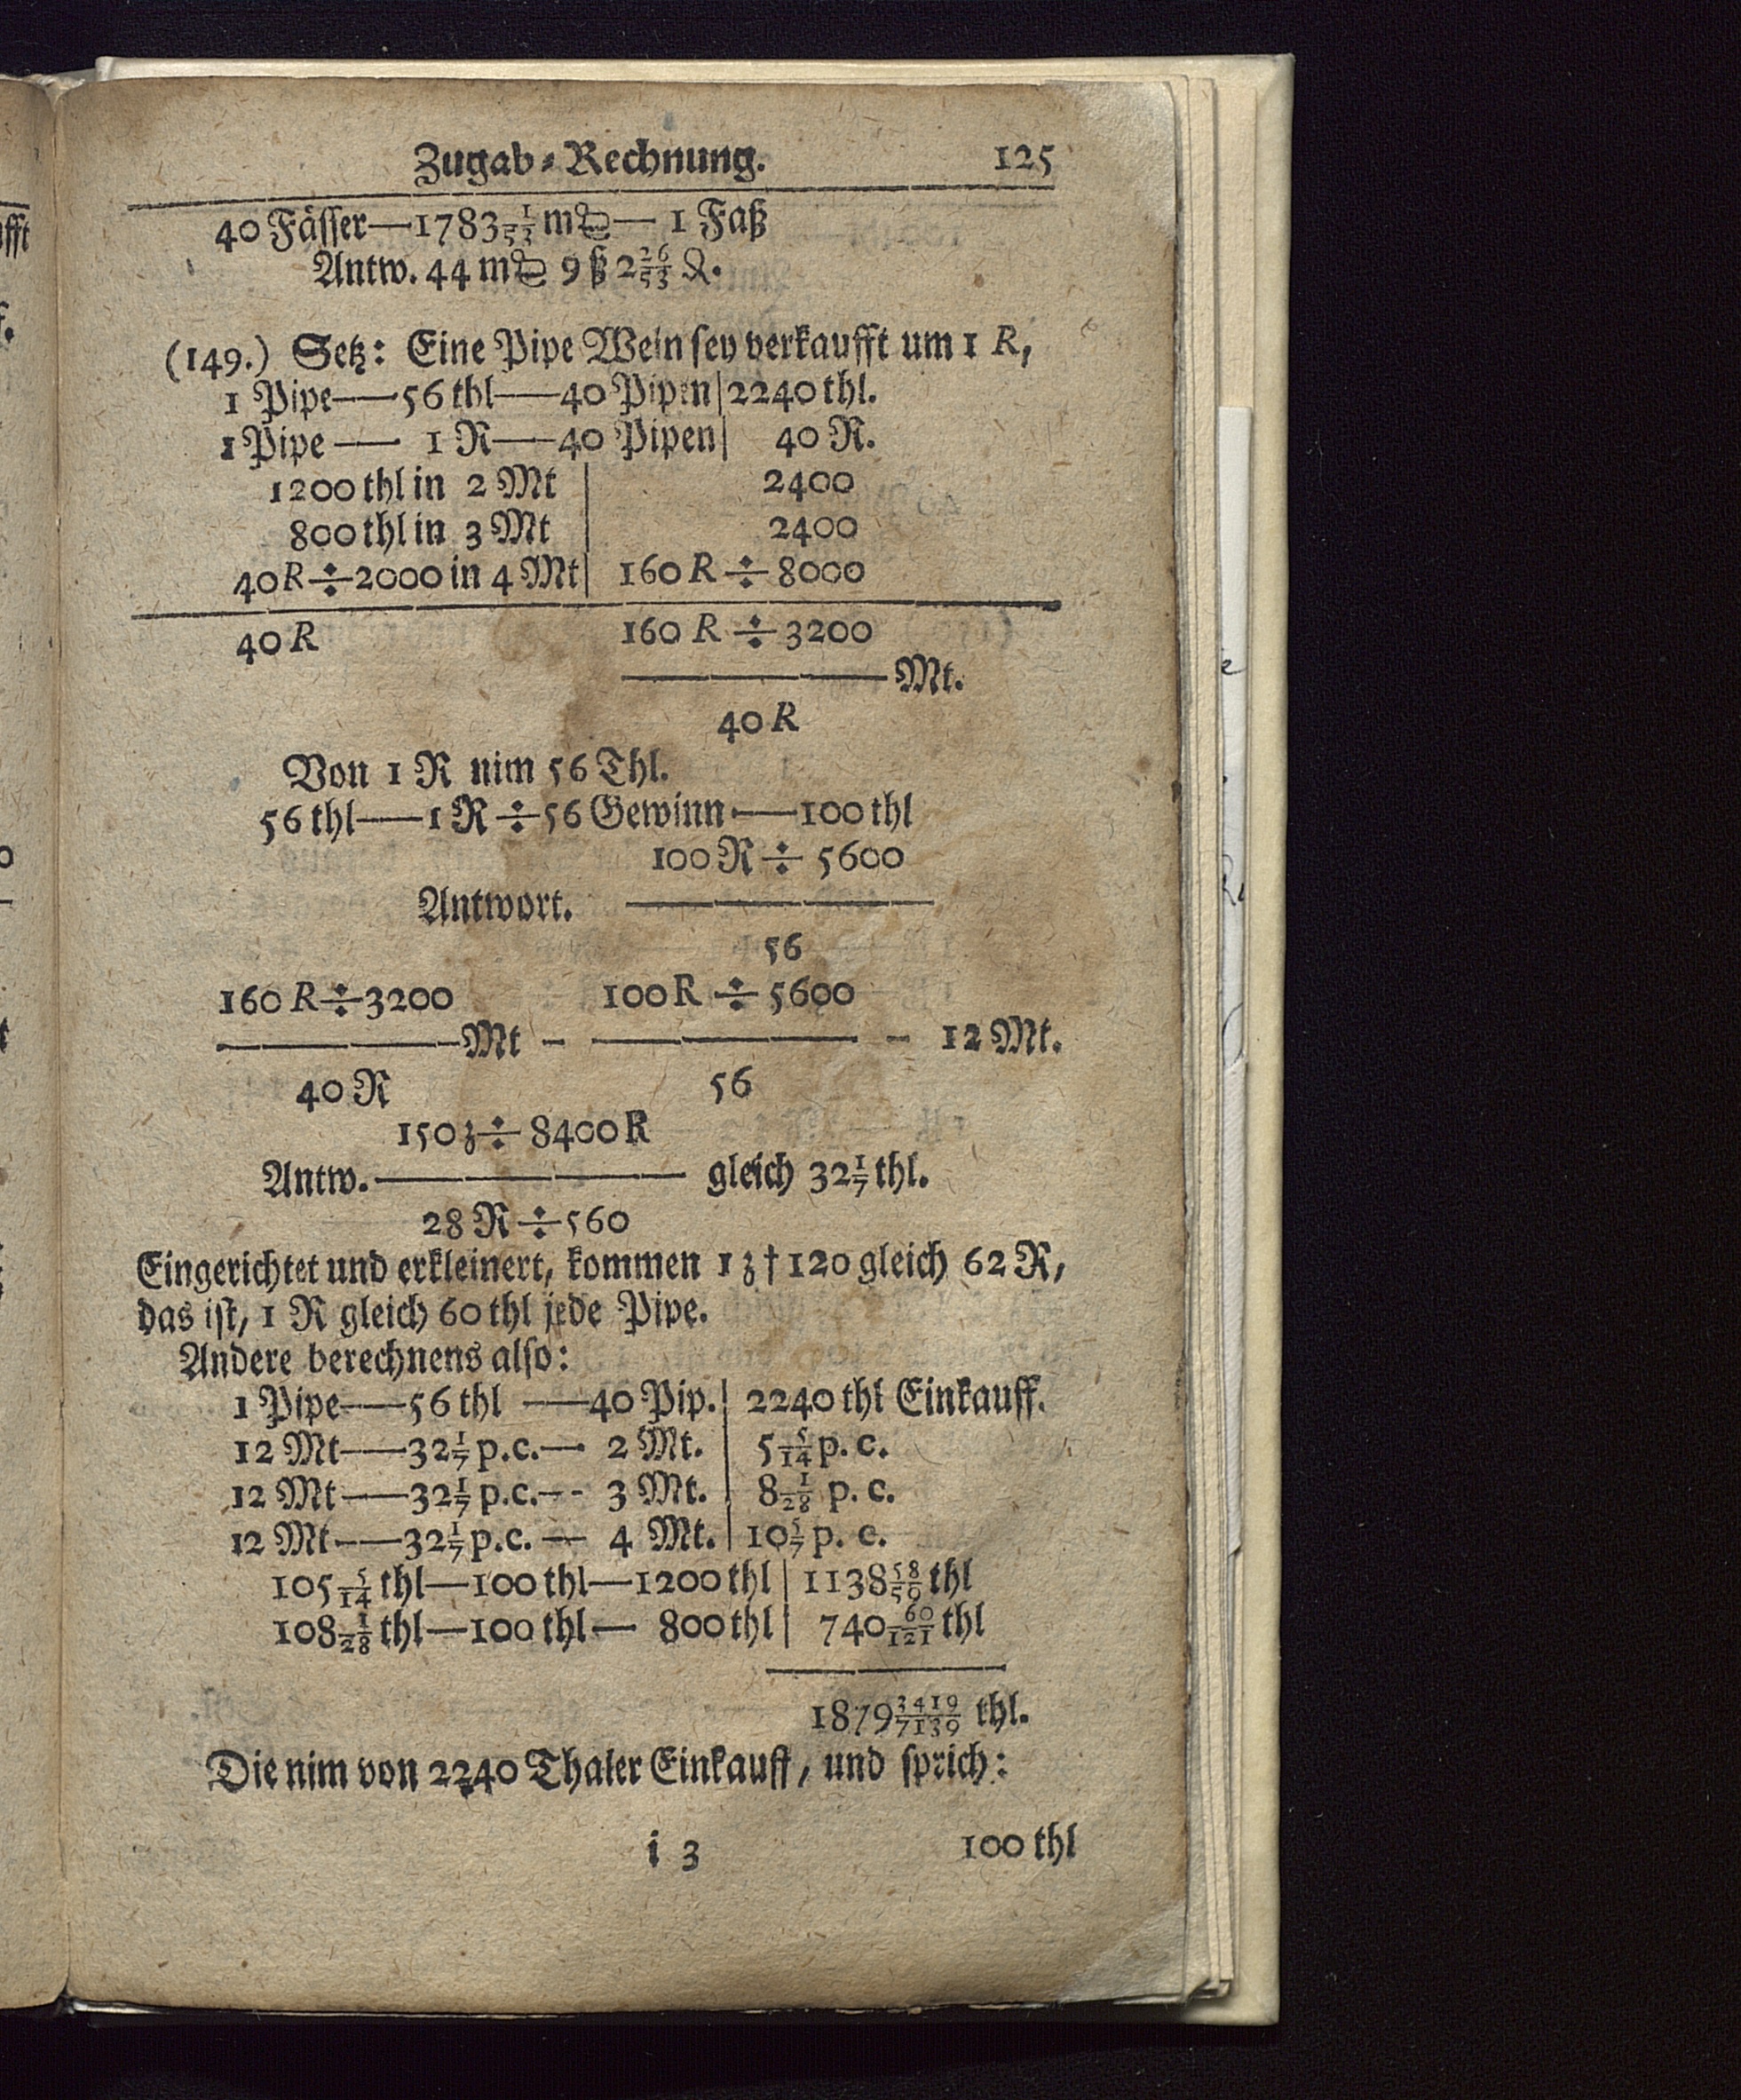 Zugab-Rechnung. 125
40 Fässer—1783 1/53 m— 1 Faß
Antw. 44 m 9 ß 2 26/53 ₰.
(149.) Setz: Eine Pipe Wein sey verkaufft um 1 R,
1 Pipe—56 thl—40 Pipen|2240 thl.
1 Pipe— 1 R—40 Pipen| 40 R.
1200 thl in 2 Mt | 2400
800 thl in 3 Mt | 2400
40 R÷2000 in 4 Mt| 160 R÷8000
40 R 160 R÷3200
Mt.
40 R
Von 1 R nim 56 Thl.
56 thl—1 R÷56 Gewinn—100 thl
100 R÷5600
Antwort.
56
160 R÷3200 100 R÷5600
Mt - - 12 Mt.
40 R 56
150 z÷8400 R
Antw. gleich 32 1/7 thl.
28 R÷560
Eingerichtet und erkleinert, kommen 1 z † 120 gleich 62 R,
das ist, 1 R gleich 60 thl jede Pipe.
Andere berechnens also:
1 Pipe—56 thl—40 Pip.| 2240 thl Einkauff.
12 Mt—32 1/7 p.c.— 2 Mt. | 5 5/14 p. c.
12 Mt—32 1/7 p.c.-- 3 Mt. | 8 1/28 p. c.
12 Mt—32 1/7 p.c.— 4 Mt. | 10 5/7 p. c.
105 5/14 thl—100 thl—1200 thl | 1138 58/59 thl
108 1/28 thl—100 thl— 800 thl | 740 60/121 thl
1879 3419/7139 thl.
Die nim von 2240 Thaler Einkauff, und sprich:
i 3 100 thl